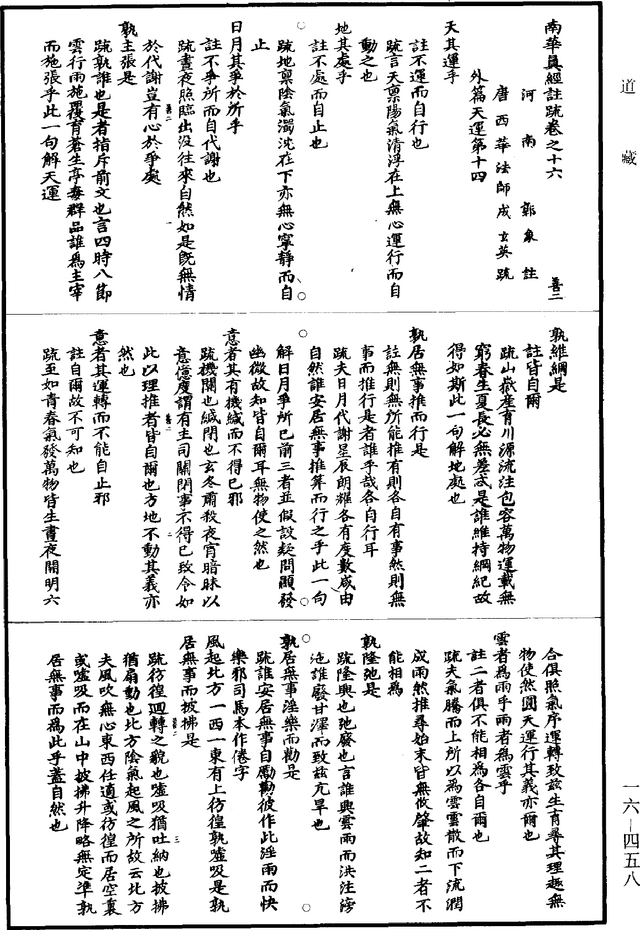 道藏
南華真經註疏卷之十六 善二
河南郭象註
唐西華法師成玄英疏
外篇天運第十四
天其運乎
註不運而自行也
疏言天稟陽氣清浮在上無心運行而自
動之也
地其處乎
註不處而自止也
疏地稟陰氣濁沈在下亦無心寧靜而自
止
日月其爭於所乎
註不爭所而自代謝也
疏晝夜照臨出沒往來自然如是既無情
於代謝豈有心於爭處
孰主張是
疏孰誰也是者指斥前文也言四時八節
雲行雨施覆育蒼生亭毒群品誰為主宰
而施張乎此一句解天運
孰維綱是
註皆自爾
疏山嶽產育川源流注包容萬物運載無
窮春生夏長必無差忒是誰維持綱紀故
得如斯此一句解地處也
孰居無事推而行是
註無則無所能推有則各自有事然則無
事而推行是者誰乎哉各自行耳
疏夫日月代謝星辰朗耀各有度數咸由
自然誰安居無事推算而行之乎此一句
解日月爭所已前三者並假設疑問顯發
幽微故知皆自爾耳無物使之然也
意者其有機緘而不得已邪
疏機關也緘閉也玄冬肅殺夜宵暗昧以
意億度謂有主司關閉事不得已致令如
此以理推者皆自爾也方地不動其義亦
然也
意者其運轉而不能自止邪
註自爾故不可知也
疏至如青春氣發萬物皆生晝夜開明六
合俱照氣序運轉致茲生育尋其理趣無
物使然圓天運行其義亦爾也
雲者為雨乎雨者為雲乎
註二者俱不能相為各自爾也
疏夫氣騰而上所以為雲雲散而下流潤
成雨然推尋始末皆無攸肇故知二者不
能相為
孰隆施是
疏隆興也施廢也言誰興雲雨而洪注滂
沱誰廢甘澤而致茲亢旱也
孰居無事淫樂而勸是
疏誰安居無事自勵勸彼作此淫雨而快
樂邪司馬本作倦字
風起北方一西一東有上彷徨孰噓吸是孰
居無事而披拂是
疏彷徨迴轉之貌也噓吸猶吐納也披拂
猶扇動也北方陰氣起風之所故云北方
夫風吹無心東西任適或彷徨而居空裏
或噓吸而在山中披拂升降略無定準孰
居無事而為此乎蓋自然也
一六—四五八